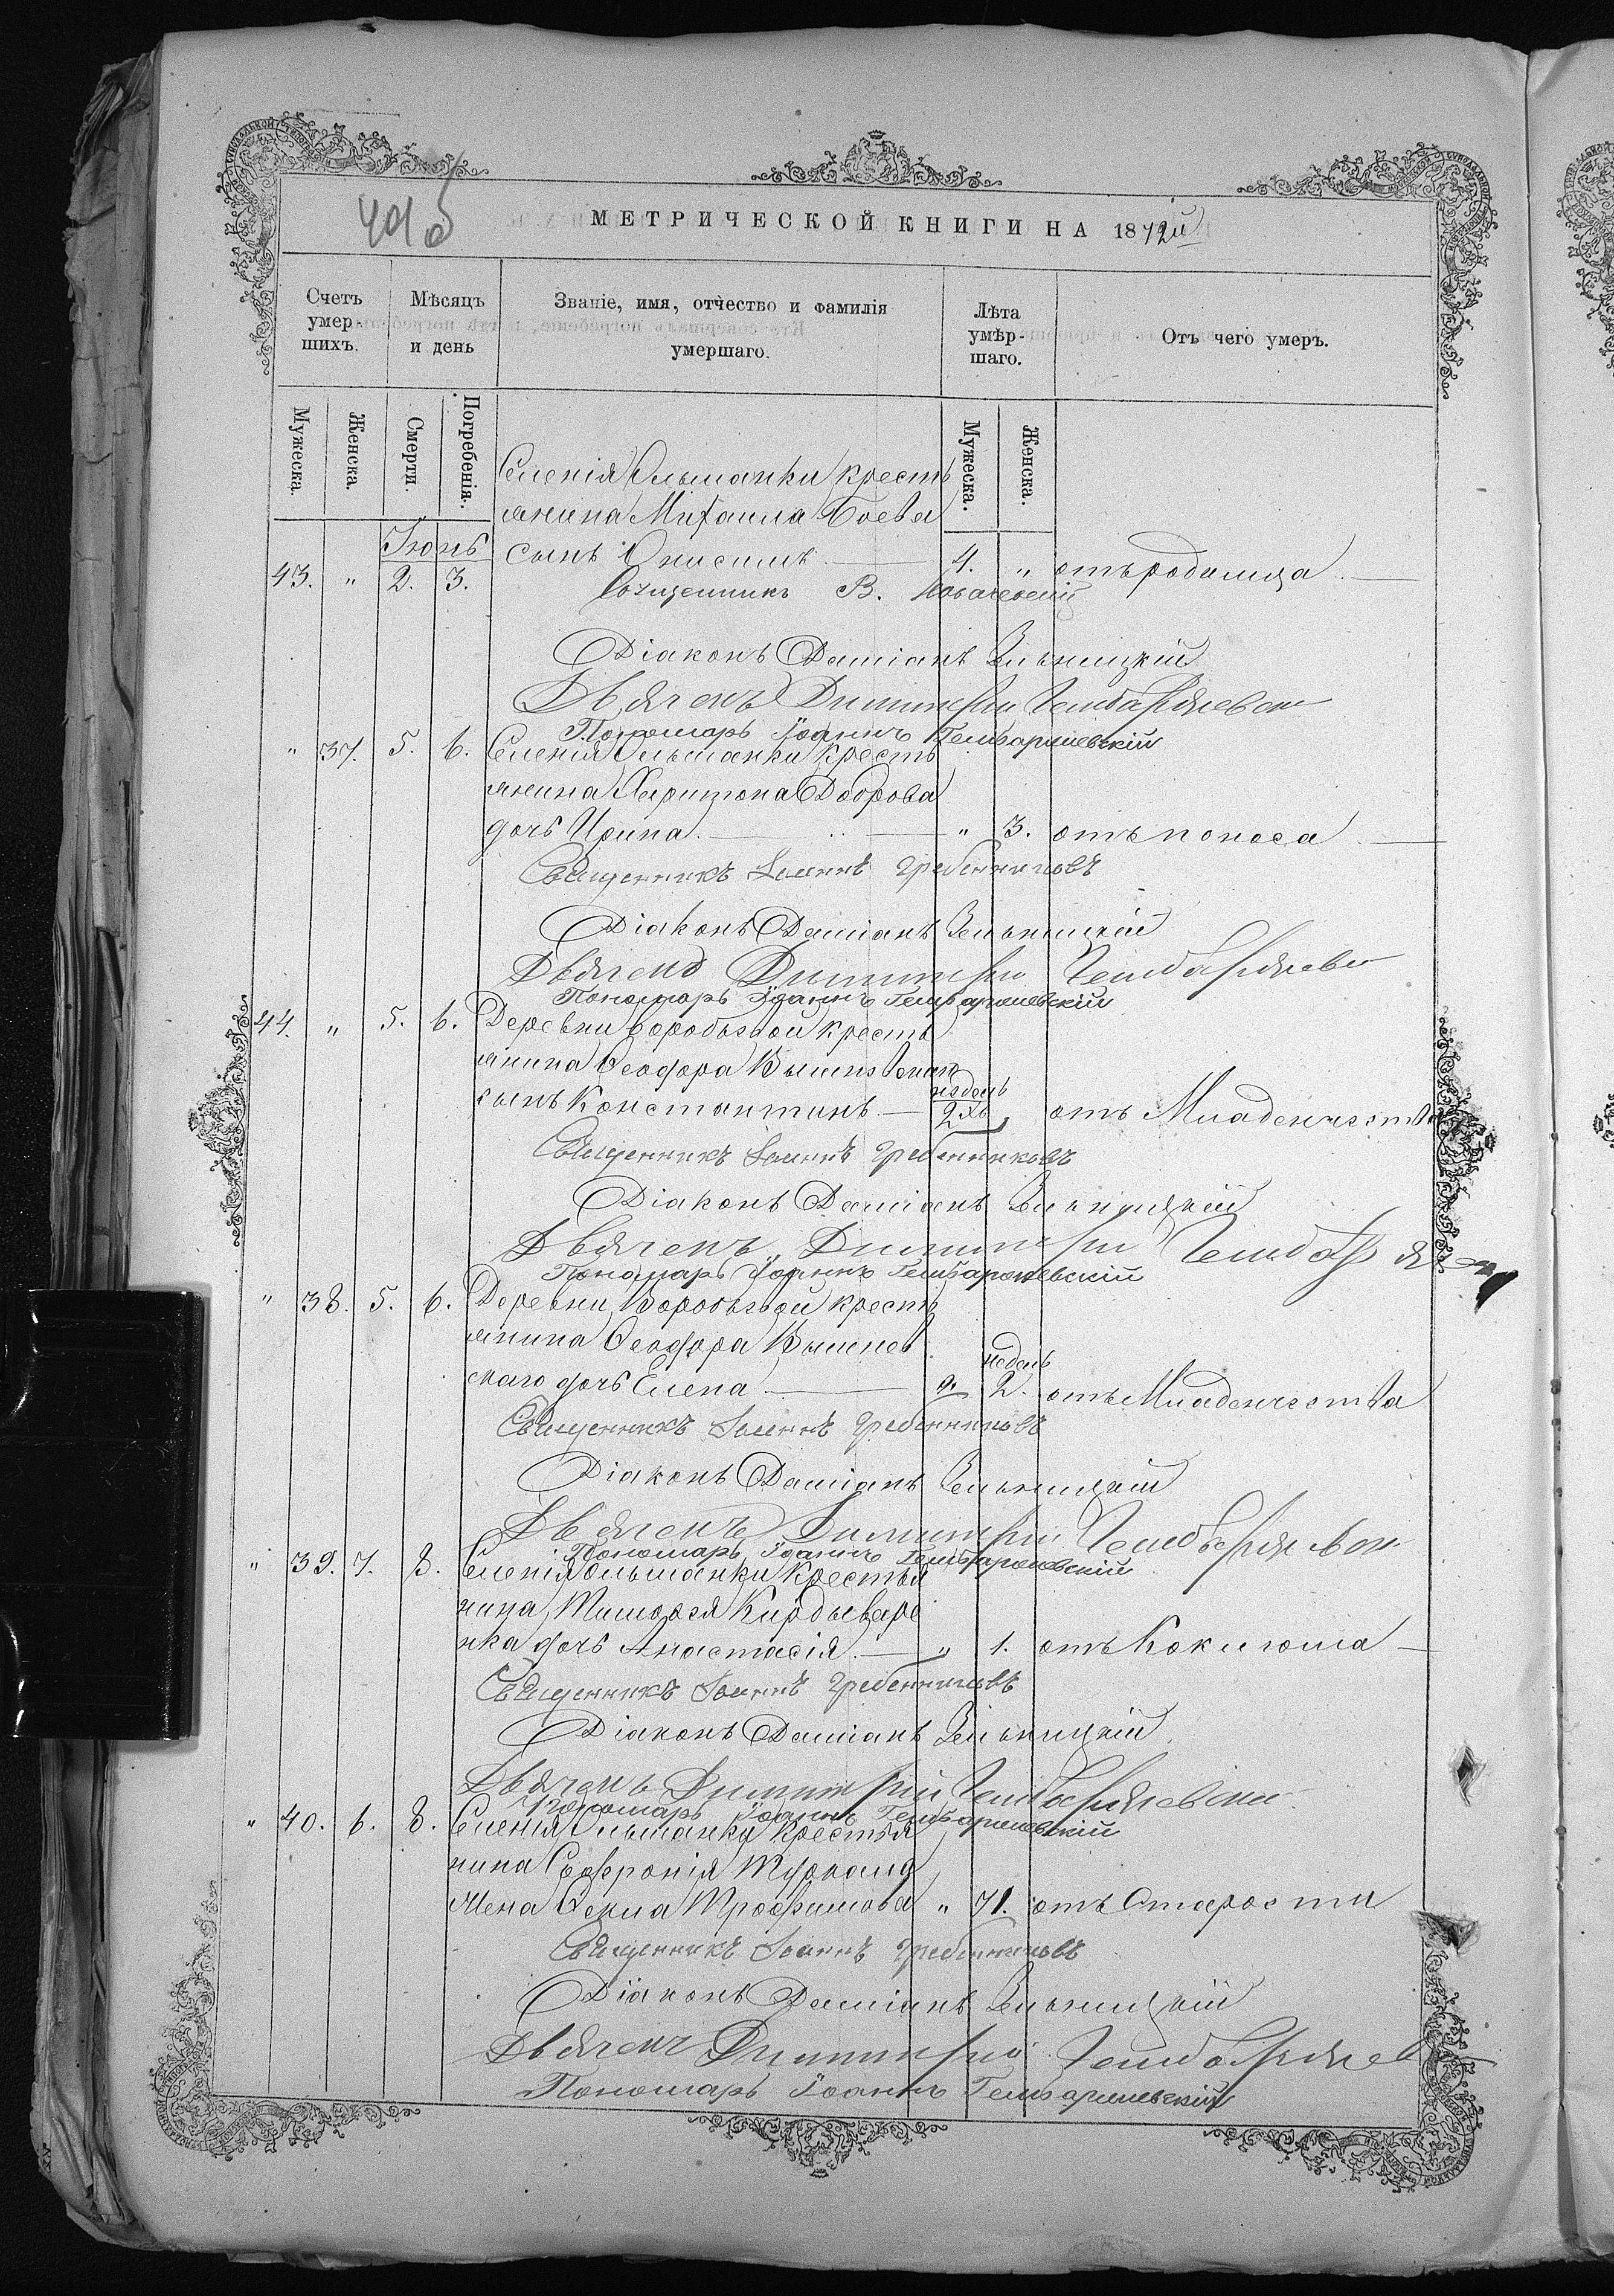 МЕТРИЧЕСКОЙ КНИГИ НА 1872й
Счетъ умер-шихъ.
Мѣсяцъ и день
Званіе, имя, отчество и фамилія умершаго.
Лѣта умѣр-шаго.
Отъ чего умеръ.
Мужеска.
Женска.
Смерти.
Погребенія.
Мужеска.
Женска.
Селенія Ольшанки кресть
янина Михаила Боева
Іюнь
43. " 2. 3. сынъ Онисимъ 4. " отъ родимца
Священникъ В.
Діаконъ Даміанъ Зельницкій
Дьячекъ Димитрій
Пономарь Іоаннъ Гембаржевскій
" 37. 5. 6. Селенія Ольшанки кресть
янина Харитона Доброва
дочь Ирина. " 3. отъ поноса
Священникъ Іоаннъ Гребенниковъ
Діаконъ Даміанъ Зельницкій
Дьячекъ Димитрій
Пономарь Іоаннъ Гембаржевскій
44. " 5. 6. Деревни Воробьевой кресть
янина Ѳеодора
недель
сынъ Константинъ 2хъ " отъ Младенчества
Священникъ Іоаннъ Гребенниковъ
Діаконъ Даміанъ Зельницкій
Дьячекъ Димитрій
Пономарь Іоаннъ Гембаржевскій
" 38. 5. 6. Деревни Воробьевой кресть
янина Ѳеодора Вышнев
недель
скаго дочь Елена " 2. отъ Младенчества
Священникъ Іоаннъ Гребенниковъ
Діаконъ Даміанъ Зельницкій
Дьячекъ Димитрій
Пономарь Іоаннъ Гембаржевскій
" 39. 7. 8. Селенія Ольшанки Крестья
нина Тимоѳея
нка дочь Анастасія. " 1. отъ Коклюша
Священникъ Іоаннъ Гребенниковъ
Діаконъ Даміанъ Зельницкій
Дьячекъ Димитрій
Пономарь Іоаннъ Гембаржевскій
" 40. 6. 8. Селенія Ольшанки Крестья
нина Софронія
Жена Ѳекла Трофимова " 71. отъ Старости
Священникъ Іоаннъ Гребенниковъ
Діаконъ Даміанъ Зельницкій
Дьячекъ Димитрій
Пономарь Іоаннъ Гембаржевскій